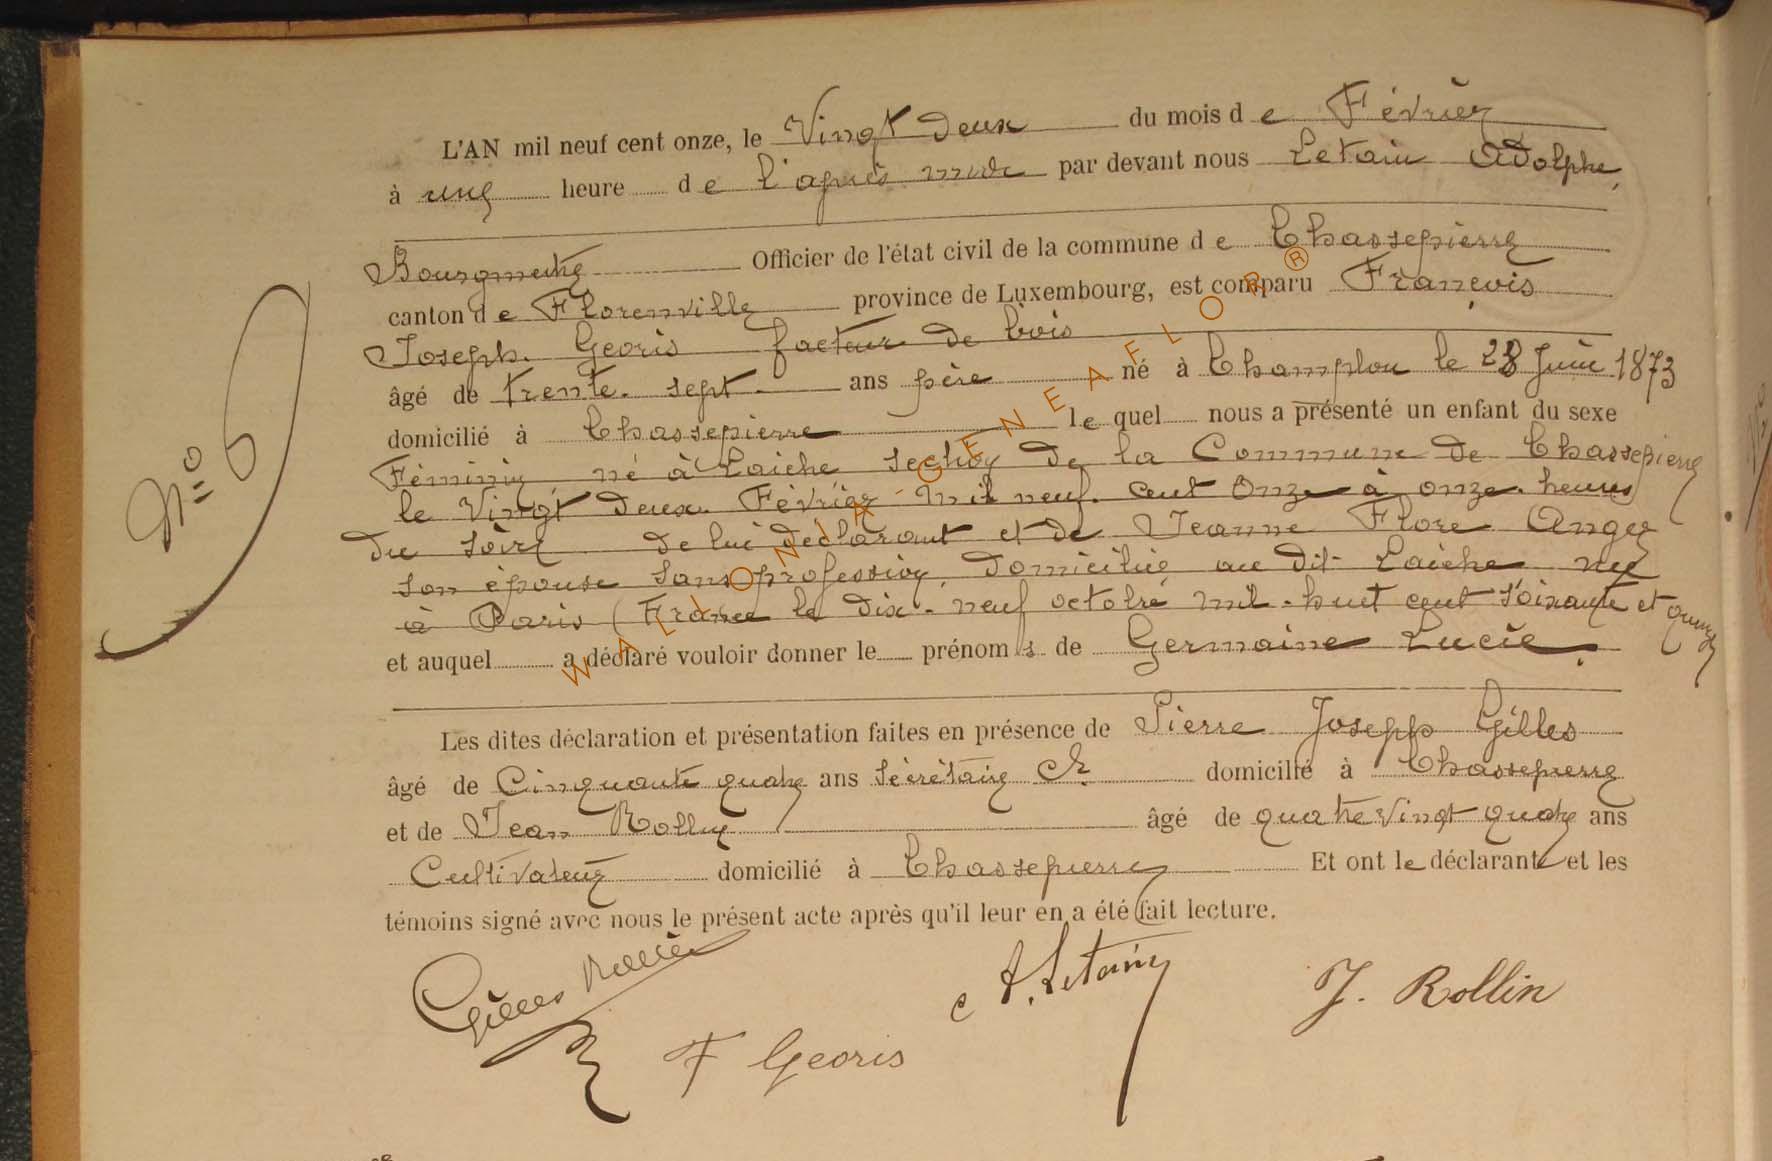 N=o 6
L'AN mil neuf cent onze, le Vingt deux du mois de Février
à une heure de l'après midi par devant nous Letain Adolphe,
Bourgmestre Officier de l'état civil de la commune de Chassepierre
canton de Florenville province de Luxembourg, est comparu François
Joseph Georis facteur de bois
âgé de trente. sept ans père né à Champlon le 28 Juin 1873
domicilié à Chassepierre lequel nous a présenté un enfant du sexe
Féminin né à Laiche section de la Commune de Chassepierre
le Vingt deux Février mil neuf. cent onze à onze. heures
du soir de lui déclarant et de Jeanne Flore
son épouse sans profession, domicilié au dit Laiche née
à Paris (France le dix. neuf octobre mil. huit cent soixante et quinze
et auquel a déclaré vouloir donner le prénoms de Germaine Lucie.
Les dites déclaration et présentation faites en présence de Pierre Joseph Gilles
âgé de Cinquante quatre ans Sécrétaire Cl domicilié à Chassepierre
et de Jean Rollin âgé de quatre vingt quatre ans
Cultivateur domicilié à Chassepierre Et ont le déclarant et les
témoins signé avec nous le présent acte après qu'il leur en a été fait lecture.
Gilles A. Letain J. Rollin
F Georis
WALLONIA - GENEAFLOR ®